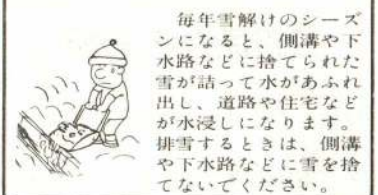 毎年雪解けのシーズ
ンになると、側溝や下
水路などに捨てられた
雪が詰って水があふれ
出し、道路や住宅など
が水浸しになります。
排雪するときは、側溝
や下水路などに雪を捨
てないでください。